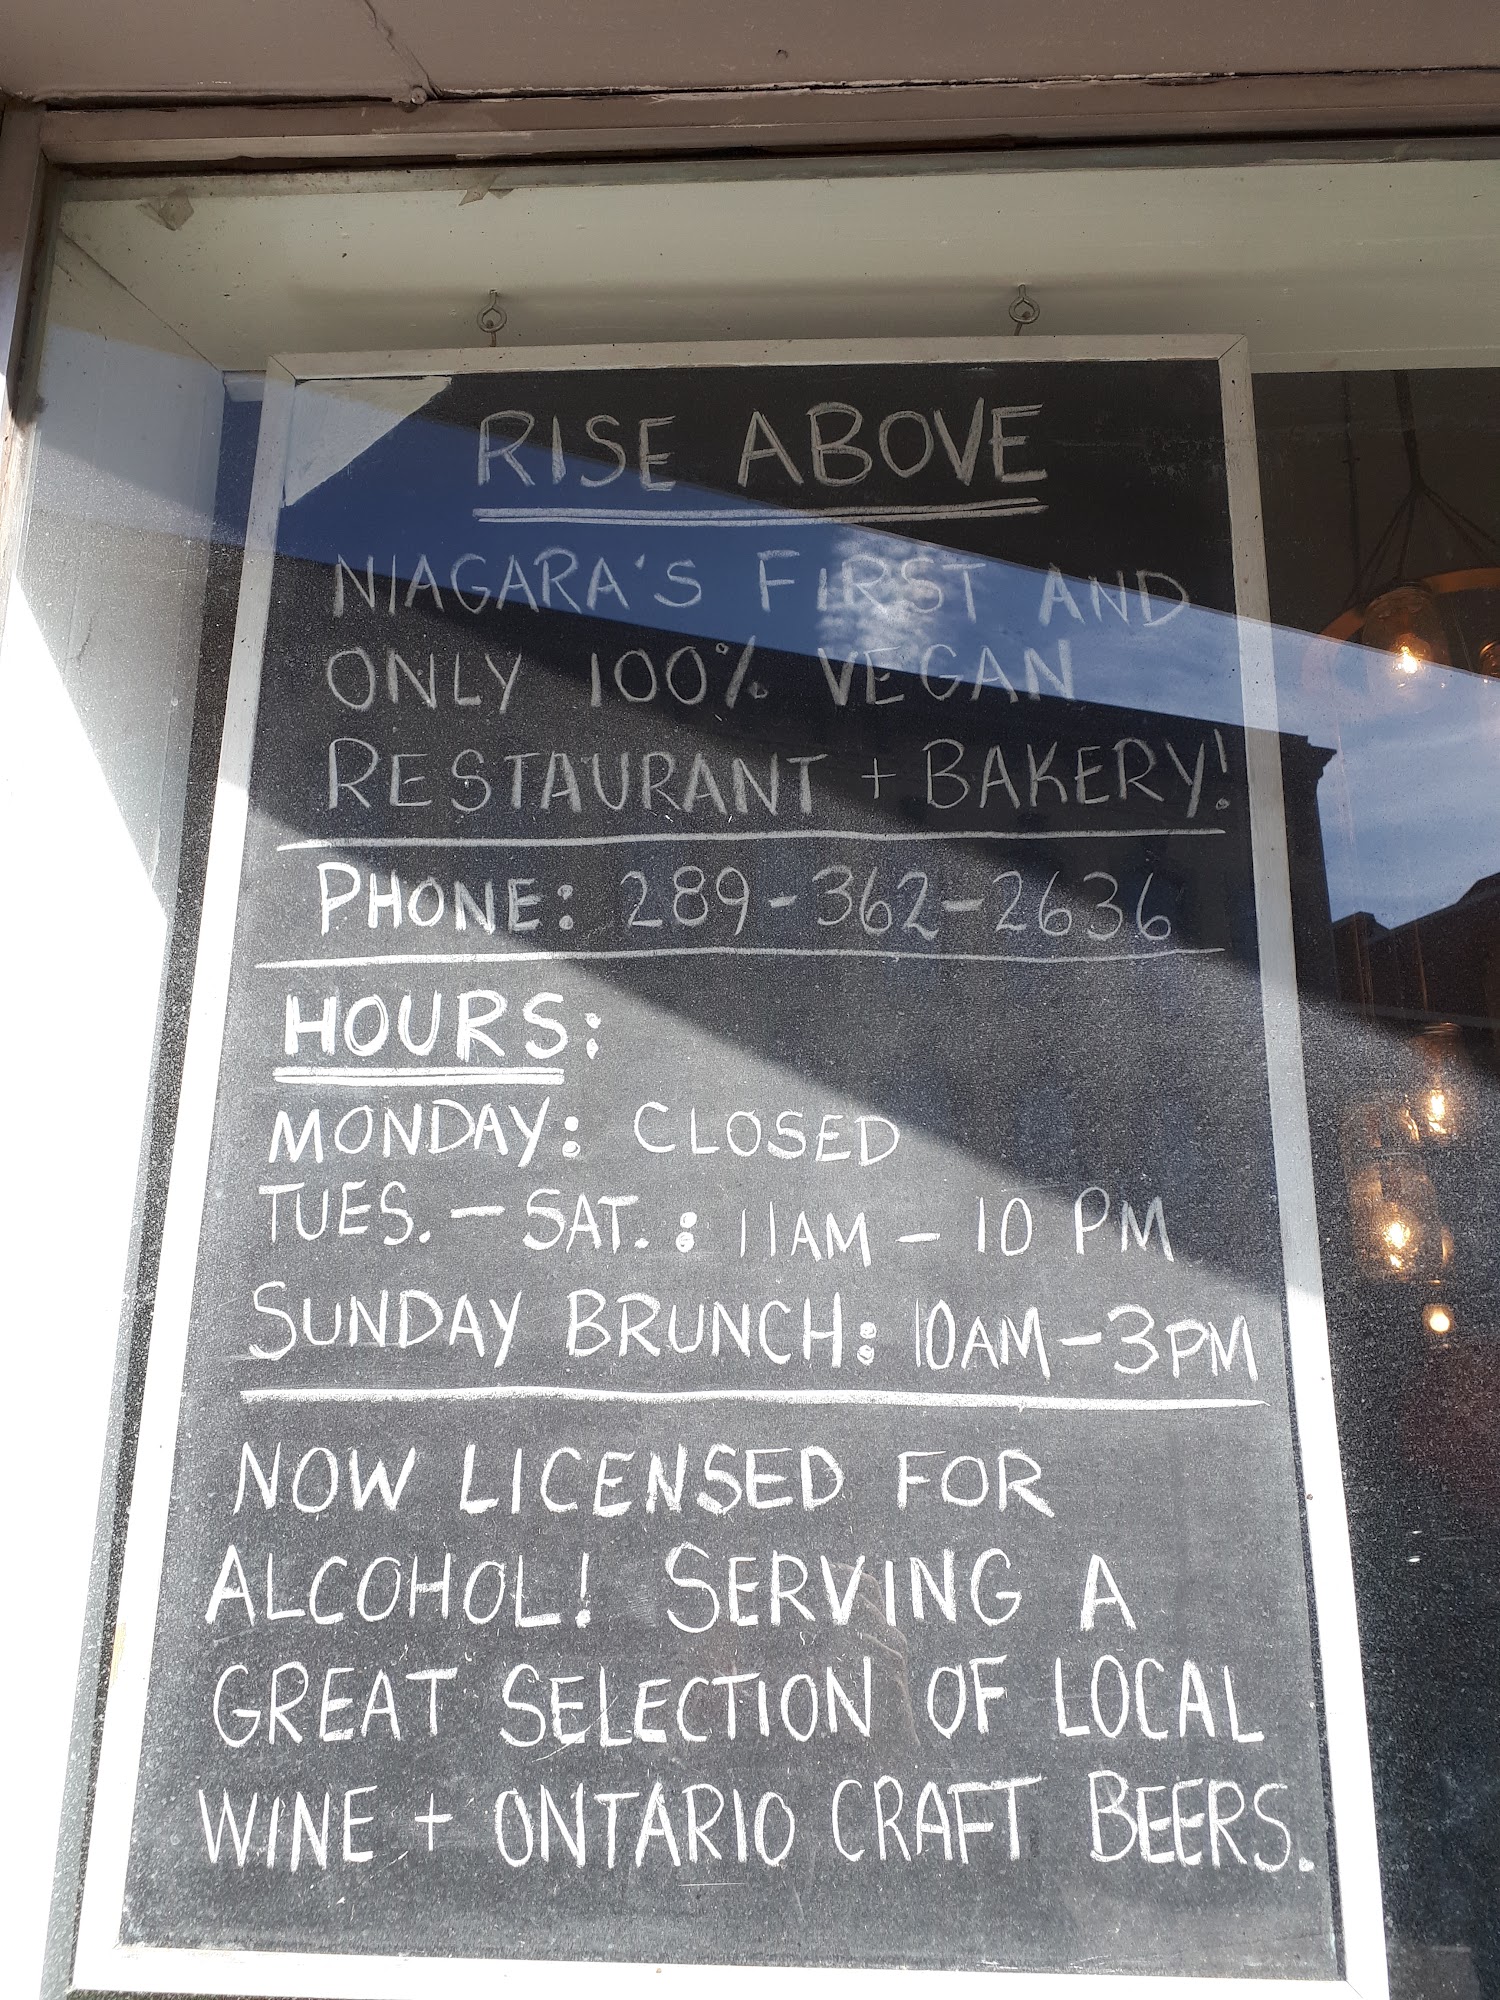 RISE ABOVE
NIAGARA'S FIRST AND
ONLY 100% VEGAN
RESTAURANT + BAKERY!
PHONE: 289-362-2636
HOURS:
MONDAY: CLOSED
TUES. - SAT. : 11AM - 10 PM
SUNDAY BRUNCH: 10AM-3PM
NOW LICENSED FOR
ALCOHOL! SERVING A
GREAT SELECTION OF LOCAL
WINE + ONTARIO CRAFT BEERS.